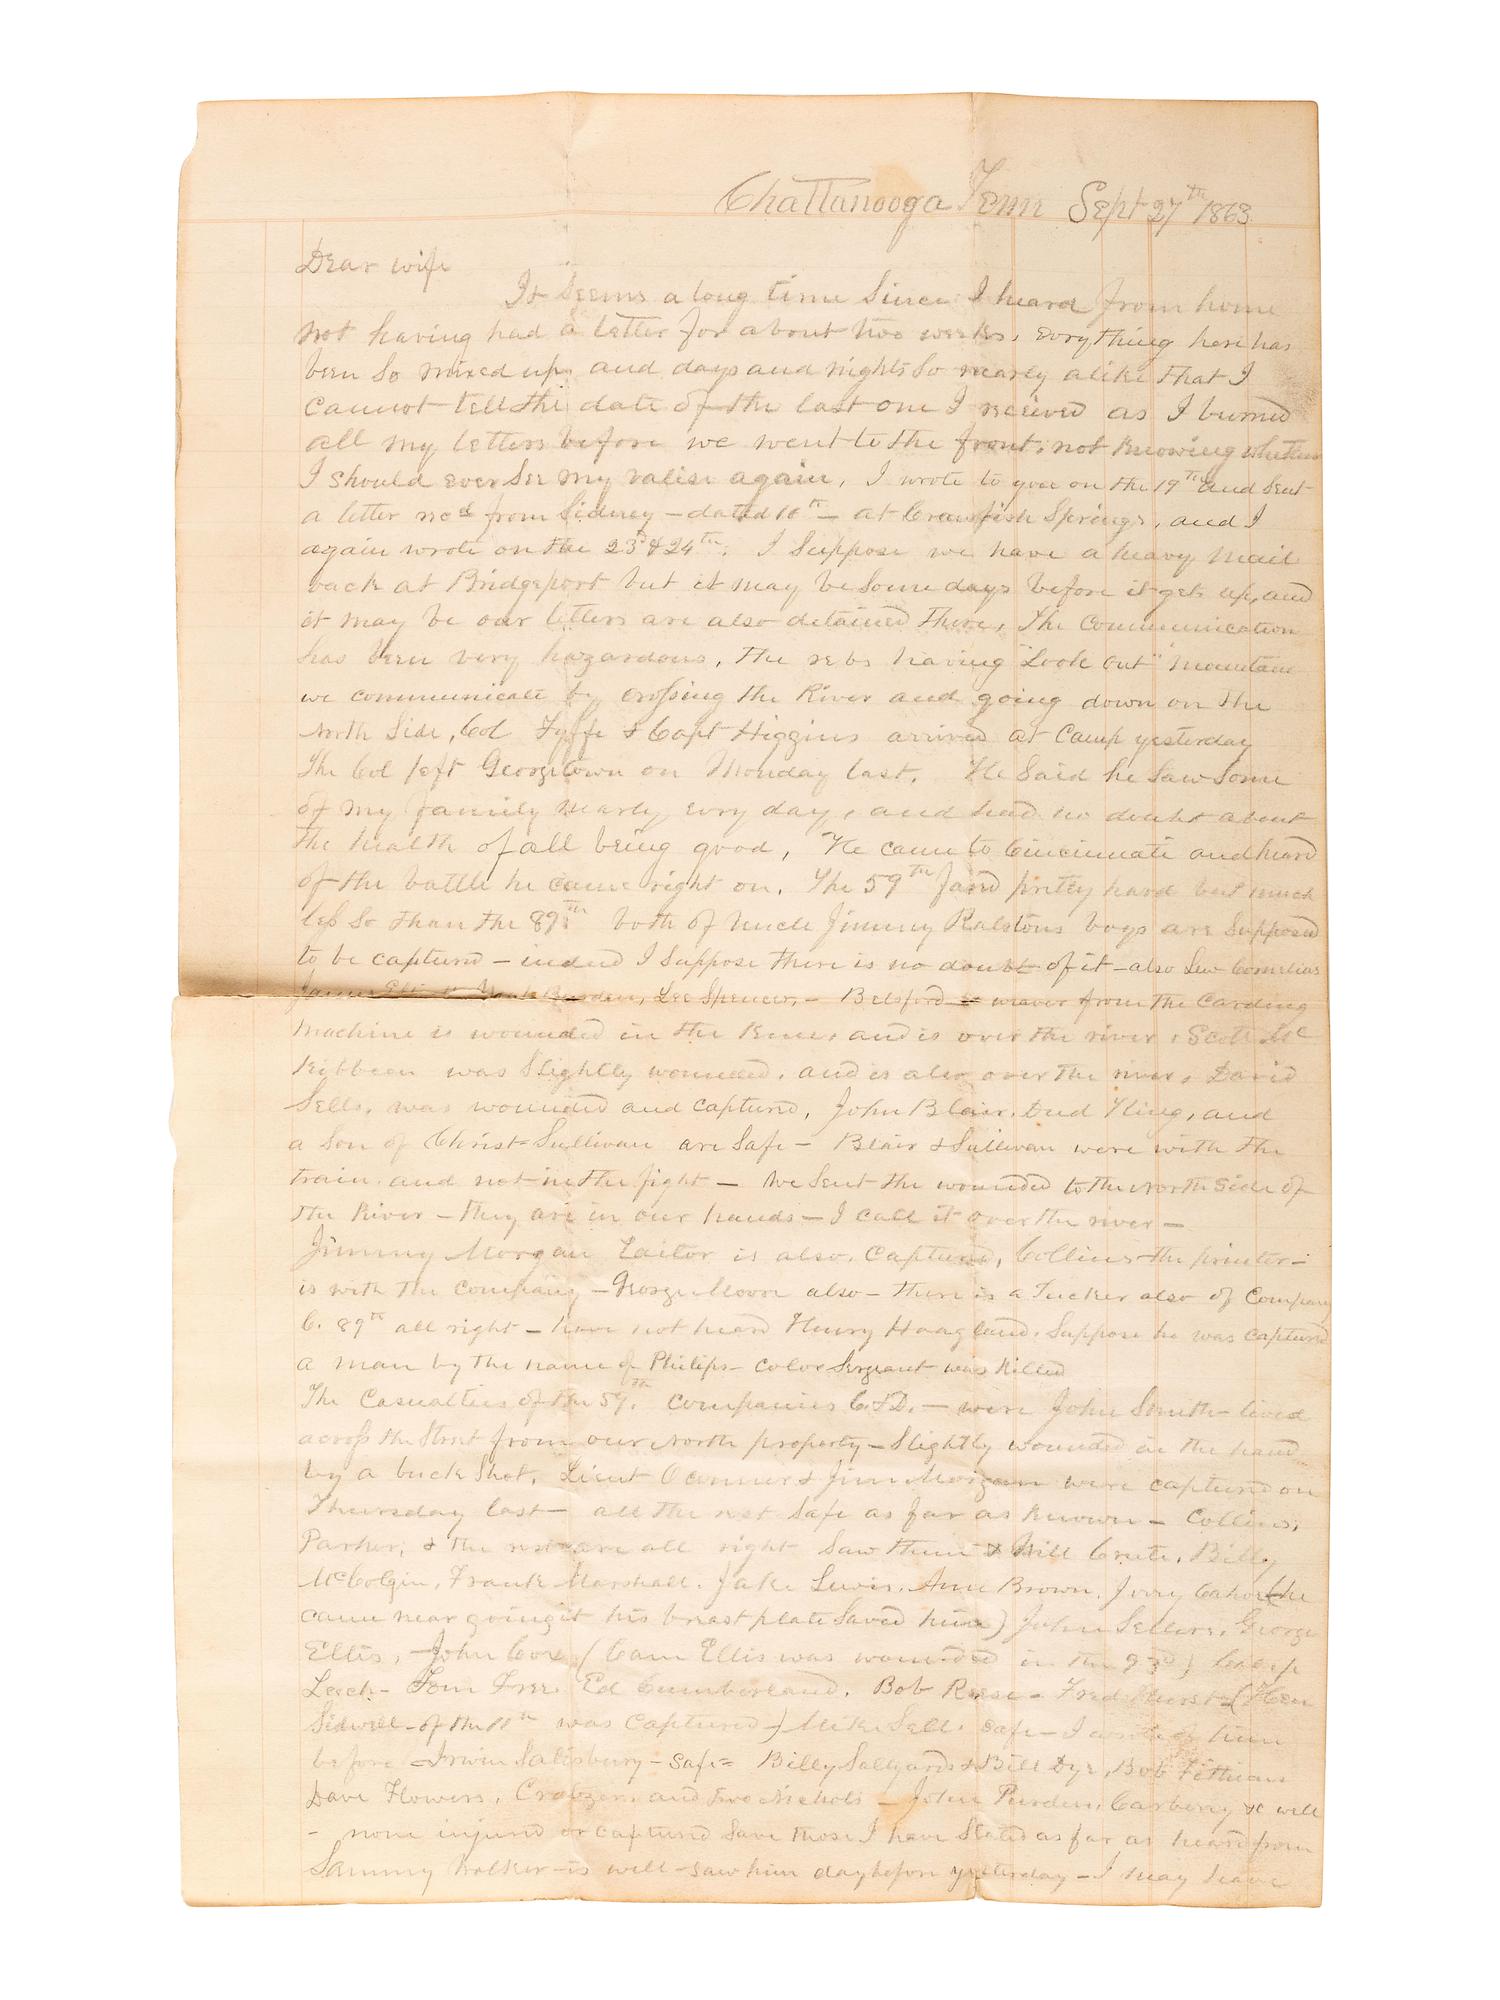 Chattanooga Tenn Sept 27th 1863
Dear wife
It seems a long time since I heard from home
not having had a letter for about two weeks, evrything here has
been so mixed up, and days and nights so nearly alike that I
cannot tell the date of the last one I received as I burned
all my letters before we went to the front, not knowing whether
I should ever see my valise again, I wrote to you on the 19th and sent
a letter recd from Sidney - dated 10th - at Crawfish Springs, and I
again wrote on the 23d & 24th. I suppose we have a heavy mail
back at Bridgeport but it may be some days before it gets up, and
it may be our letters are also detained there, The communication
has been very hazardous, the rebs having "Look out" mountain
we communicate by crossing the River and going down on the
north side, Col Fyffe & Capt Higgins arrived at camp yesterday
The Col left Georgetown on Monday last. He said he saw some
of my family nearly evry day, and had no doubt about
the health of all being good, He came to Cincinnati and heard
of the battle he came right on. The 59th fared pretty hard but much
less so than the 89th both of Uncle Jimmy Ralstons boys are supposed
to be captured - indeed I suppose there is no doubt of it - also Lew Cornelius
James Burden, Lee Spencer, - Belsford weaver from the Carding
machine is wounded in the knee, and is over the river, Scott Mc
Kibbeen was slightly wounded, and is also over the river, David
Sells, was wounded and captured, John Blair, Dud King, and
a son of Christ Sullivan are safe - Blair & Sullivan were with the
train and not in the fight - we sent the wounded to the north side of
the River - they are in our hands - I call it over the river -
Jimmy Morgan is also captured, Collins the printer -
is with the company - George Moore also - there is a Tucker also of company
C. 89th all right - have not heard Henry Hoagland, suppose he was captured
a man by the name of Philips - color Sergeant was killed
The casualties of the 59th. companies C & D. - were John Smith lived
across the street from our north property - slightly wounded in the hand
by a buck shot, Lieut Oconner & Jim Morgan were captured on
Thursday last - all the rest safe as far as known - Collins,
Parker, & the rest are all right saw them & Will Crute, Billy
McColgin, Frank Marshall, Jake Lewis, Brown, Cahor (he
came near going it his breast plate saved him) John Sellers, George
Ellis, John Core (Cam Ellis was wounded in the
Leech - Tom Free Ed Cumberland, Bob Reese - Fred Hurst (
Sidwell of the 11th was captured) Mike Sells safe - I wrote of him
before - Irwin Salisbury - safe = Billy Sallyards & Bill Dye, Bob Fithian
Dave Flowers, and two Nichols - John Purden, Carberry &c well
- none injured or captured save those I have stated as far as heard from
Sammy Walker is well - saw him day before yesterday - I may have